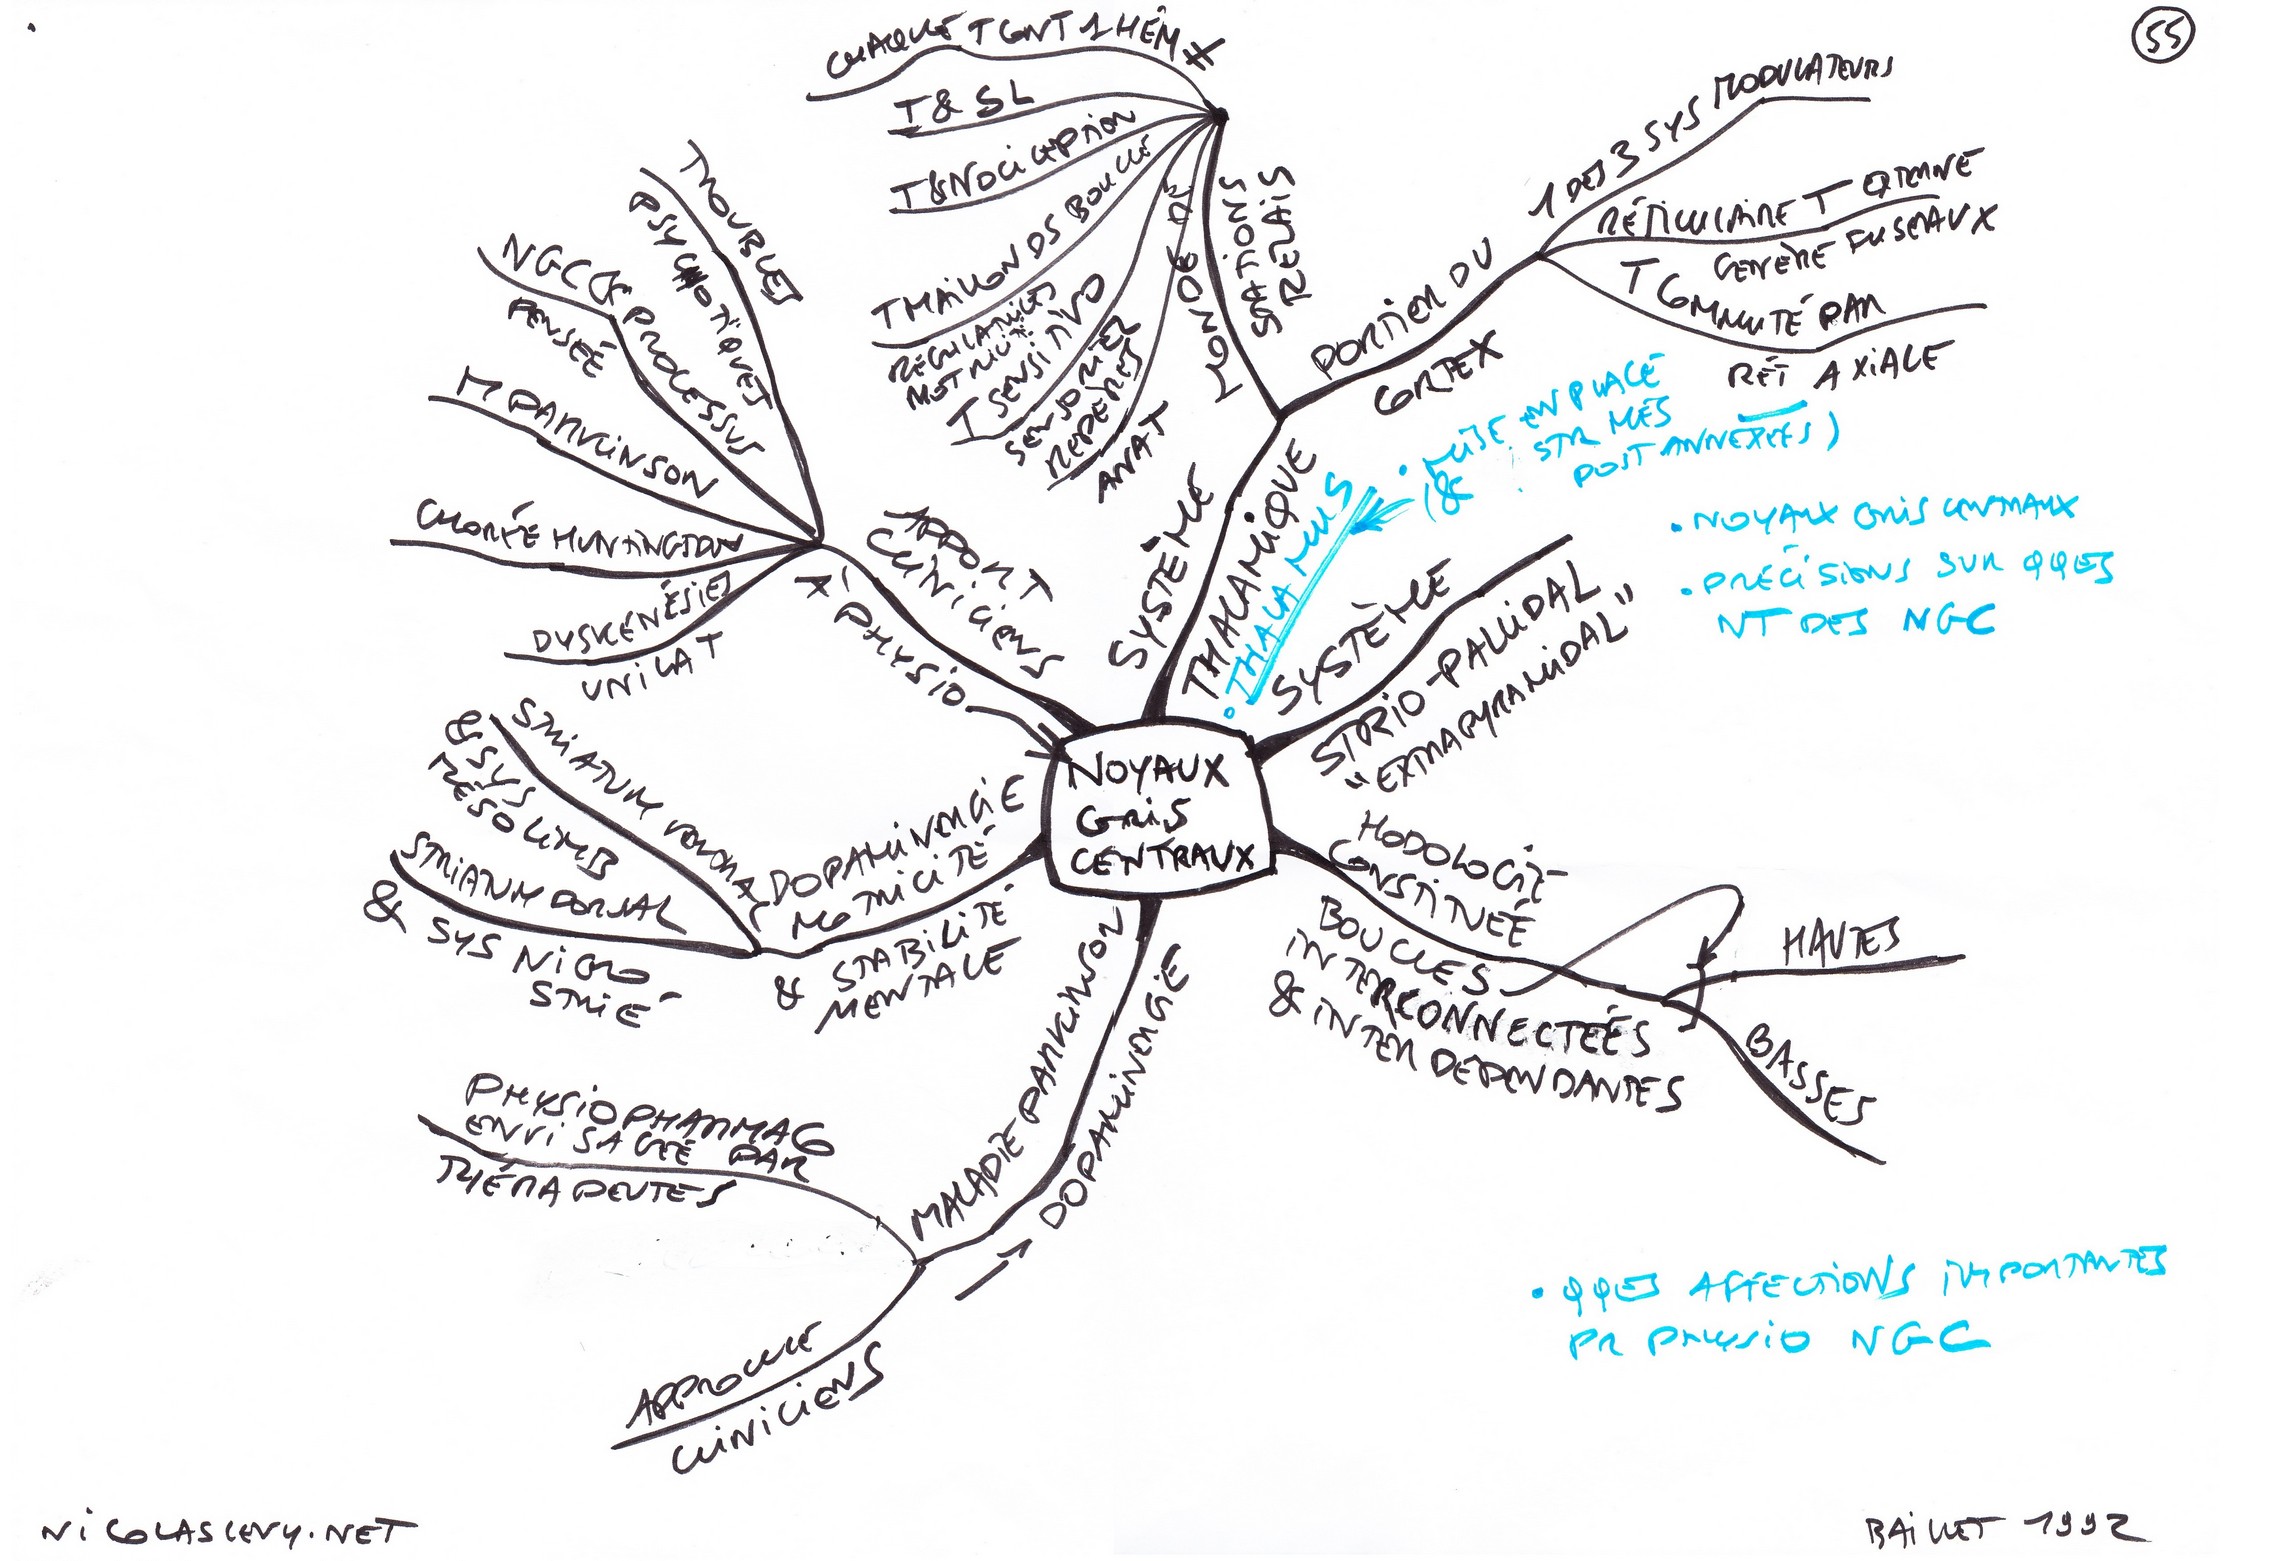 55
CHAQUE T CONT 1 HÉM
T & SL
T & NOCICEPTION
T MAILLON DS BOUCLE
RÉGULATRICES
MOTRICITÉ
T SENSITIVO
SENSORIEL
REPÈRES
ANAT
STATIONS
RELAIS
1 DES 3 SYS MODULATEURS
RÉTICULAIRE T EXTERNE
GÉNÈRE FUSEAUX
T COMMUTÉ PAR
RÉT AXIALE
PORTIER DU
CORTEX
SYSTÈME
THALAMIQUE
• THALAMUS
• MISE EN PLACE
(& STR MES
POST ANNEXÉES)
• NOYAUX GRIS CENTRAUX
• PRÉCISIONS SUR QQES
NT DES NGC
TROUBLES
PSYCHOTIQUES
NGC & PROCESSUS
PENSÉE
M PARKINSON
CHORÉE HUNTINGTON
DYSKÉNÉSIES
UNILAT
APPORT
CLINICIENS
À PHYSIO
SYSTÈME
STRIO-PALLIDAL
"EXTRAPYRAMIDAL"
NOYAUX
GRIS
CENTRAUX
STRIATUM VENTRAL
& SYS
MÉSOLIMB
STRIATUM DORSAL
& SYS NIGRO
STRIÉ
DOPAMINERGIE
MOTRICITÉ
& STABILITÉ
MENTALE
HODOLOGIE
CONSTITUÉE
BOUCLES
INTERCONNECTÉES
& INTERDÉPENDANTES
HAUTES
BASSES
MALADIE PARKINSON
→ DOPAMINERGIE
PHYSIOPHARMACO
ENVISAGÉE PAR
THÉRAPEUTES
APPROCHE
CLINICIENS
• QQES AFFECTIONS IMPORTANTES
PR PHYSIO NGC
NICOLASLEVY.NET
BAILLET 1992